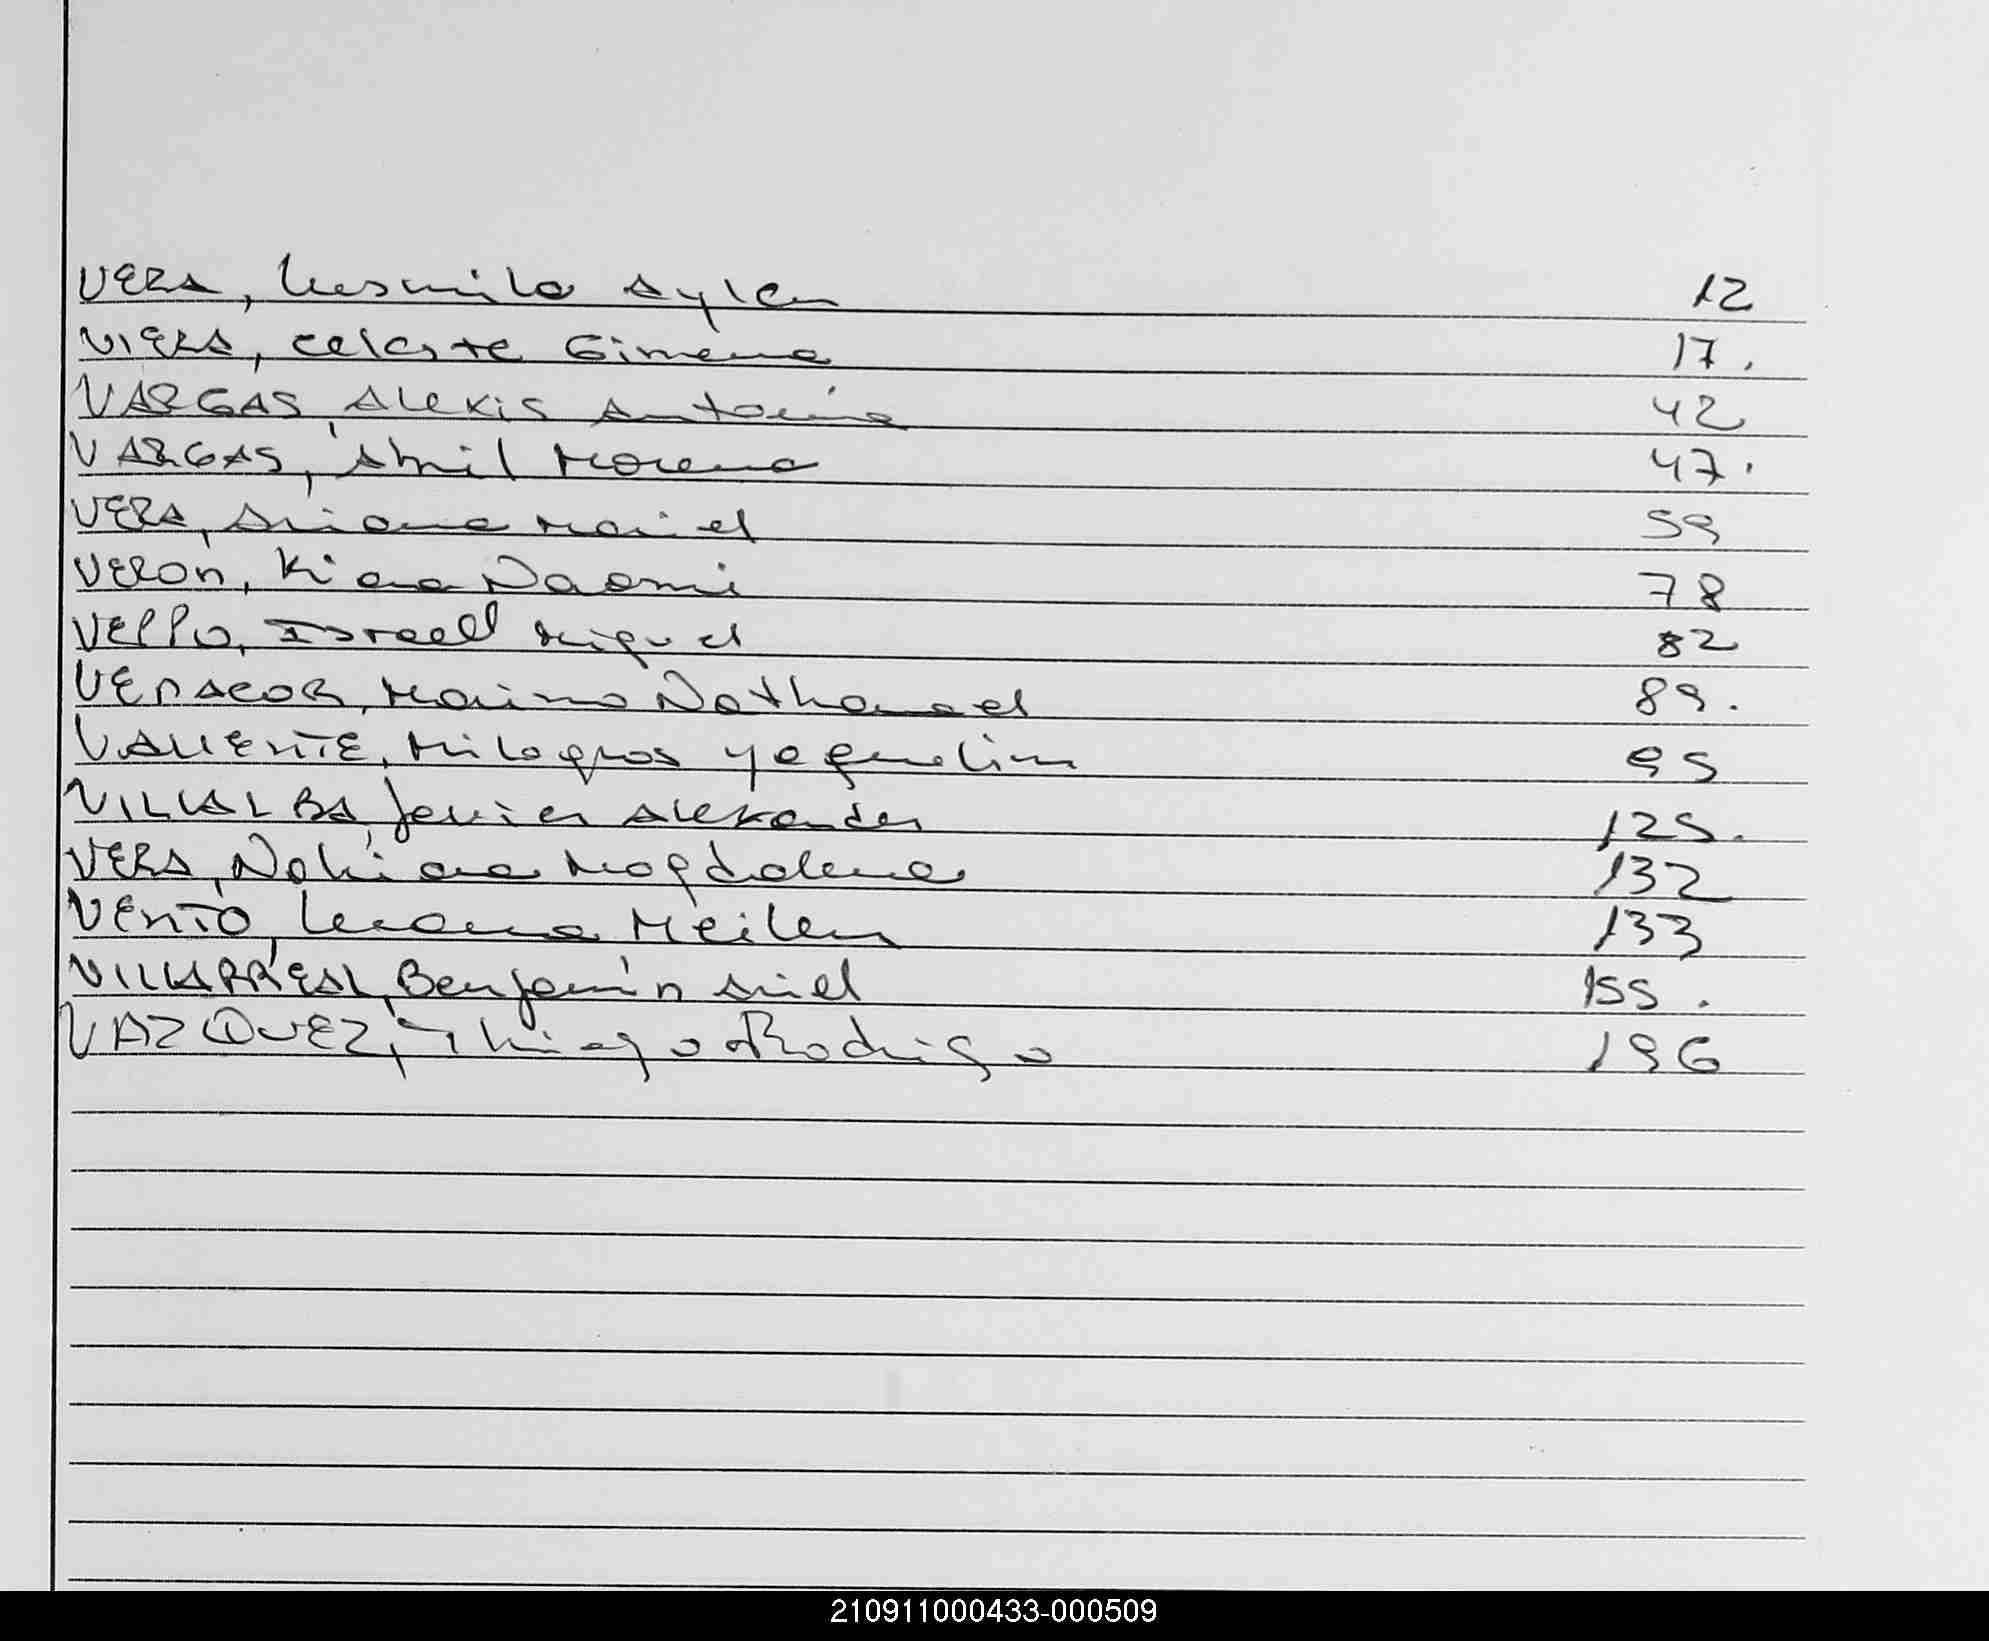 VERA, Luzmila Aylen 12
VIERA, Celeste Gimena 17.
VARGAS, Alexis Antonio 42
VARGAS, Abril Morena 47.
VERA, Ariana Mariel 59
VERON, Kiara Naomi 78
VELLO, Israel Miguel 82
Nathanael 89.
VALIENTE, Milagros Yaquelin 95
VILLALBA, Javier Alexander 125.
VERA, Nahiara Magdalena 132
VENTO, Luana Meilen 133
VILLARREAL, Benjamín Ariel 155.
VAZQUEZ, Thiago Rodrigo 196
210911000433-000509